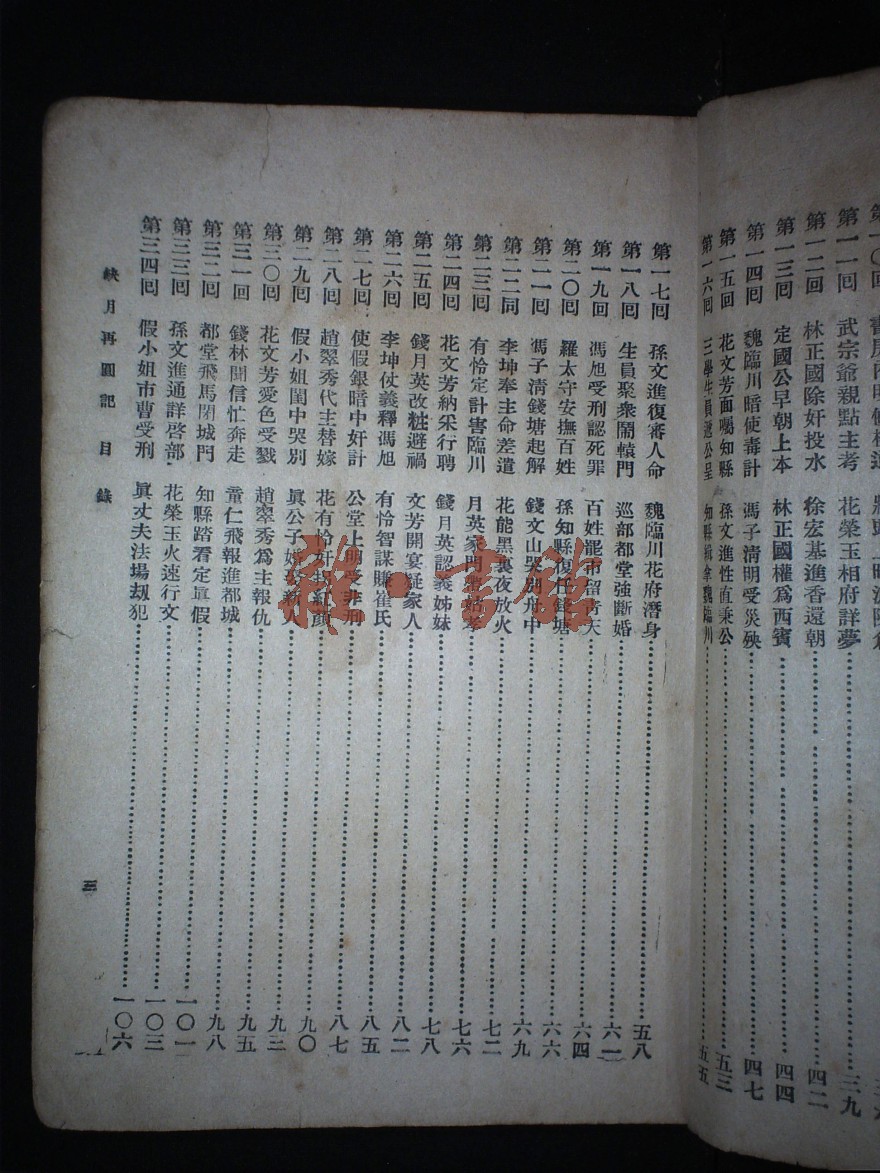 第一一回 武宗爺親點主考 花榮玉相府詳夢 三九
第一二回 林正國除奸投水 徐宏基進香還朝 四二
第一三回 定國公早朝上本 林正國權爲西賓 四四
第一四回 魏臨川暗使毒計 馮子清明受災殃 四七
第一五回 花文芳面囑知縣 孫文進性直秉公 五三
第一六回 三學生員遞公呈 知縣緝拿魏臨川 五五
第一七回 孫文進復審人命 魏臨川花府潛身 五八
第一八回 生員聚衆鬧轅門 巡部都堂強斷婚 六一
第一九回 馮旭受刑認死罪 百姓罷市留青天 六四
第二〇回 羅太守安撫百姓 孫知縣復任錢塘 六六
第二一回 馮子清錢塘起解 錢文山哭別舟中 六九
第二二回 李坤奉主命差遣 花能黑夜放火 七二
第二三回 有怜定計害臨川 月英家門弔姑 七六
第二四回 花文芳納采行聘 錢月英認義姊妹 七八
第二五回 錢月英改粧避禍 文芳開宴疑家人 八二
第二六回 李坤仗義釋馮旭 有怜智謀賺崔氏 八五
第二七回 使假銀暗中奸計 公堂上明受非刑 八七
第二八回 趙翠秀代主替嫁 花有怜奸報紅顏 九〇
第二九回 假小姐閨中哭別 眞公子婚人 九三
第三〇回 花文芳愛色受戮 趙翠秀爲主報仇 九五
第三一回 錢林聞信忙奔走 童仁飛報進都城 九八
第三二回 都堂飛馬閉城門 知縣踏看定眞假 一〇一
第三三回 孫文進通詳啓部 花榮玉火速行文 一〇三
第三四回 假小姐市曹受刑 眞丈夫法場刼犯 一〇六
缺月再圓記 目錄 三
雜·書館